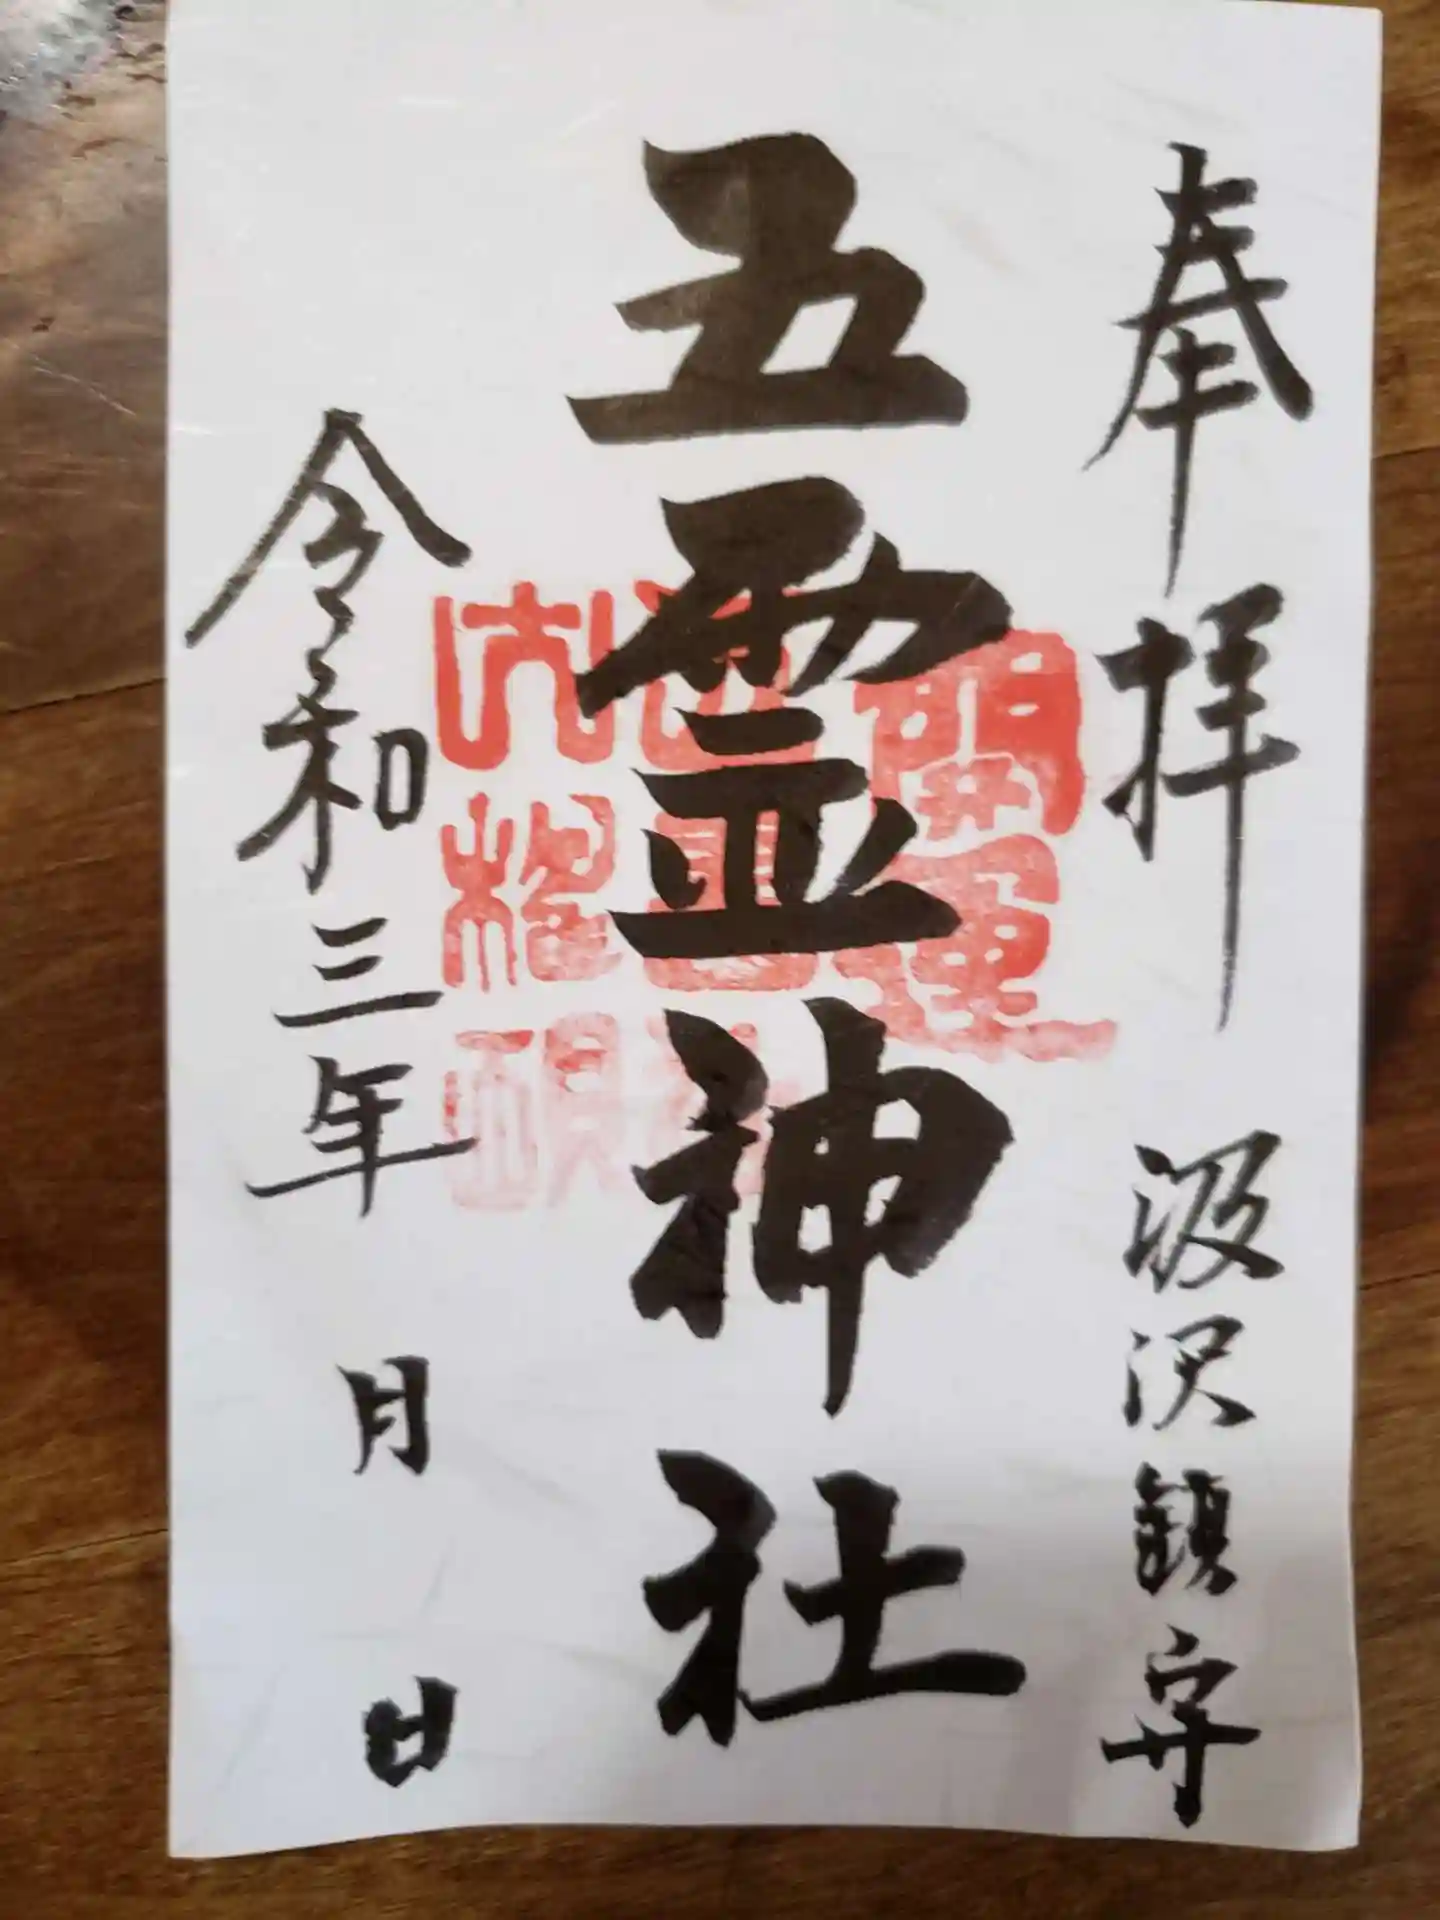 奉拝 汲沢鎮守
五霊神社
開運
令和三年 月 日